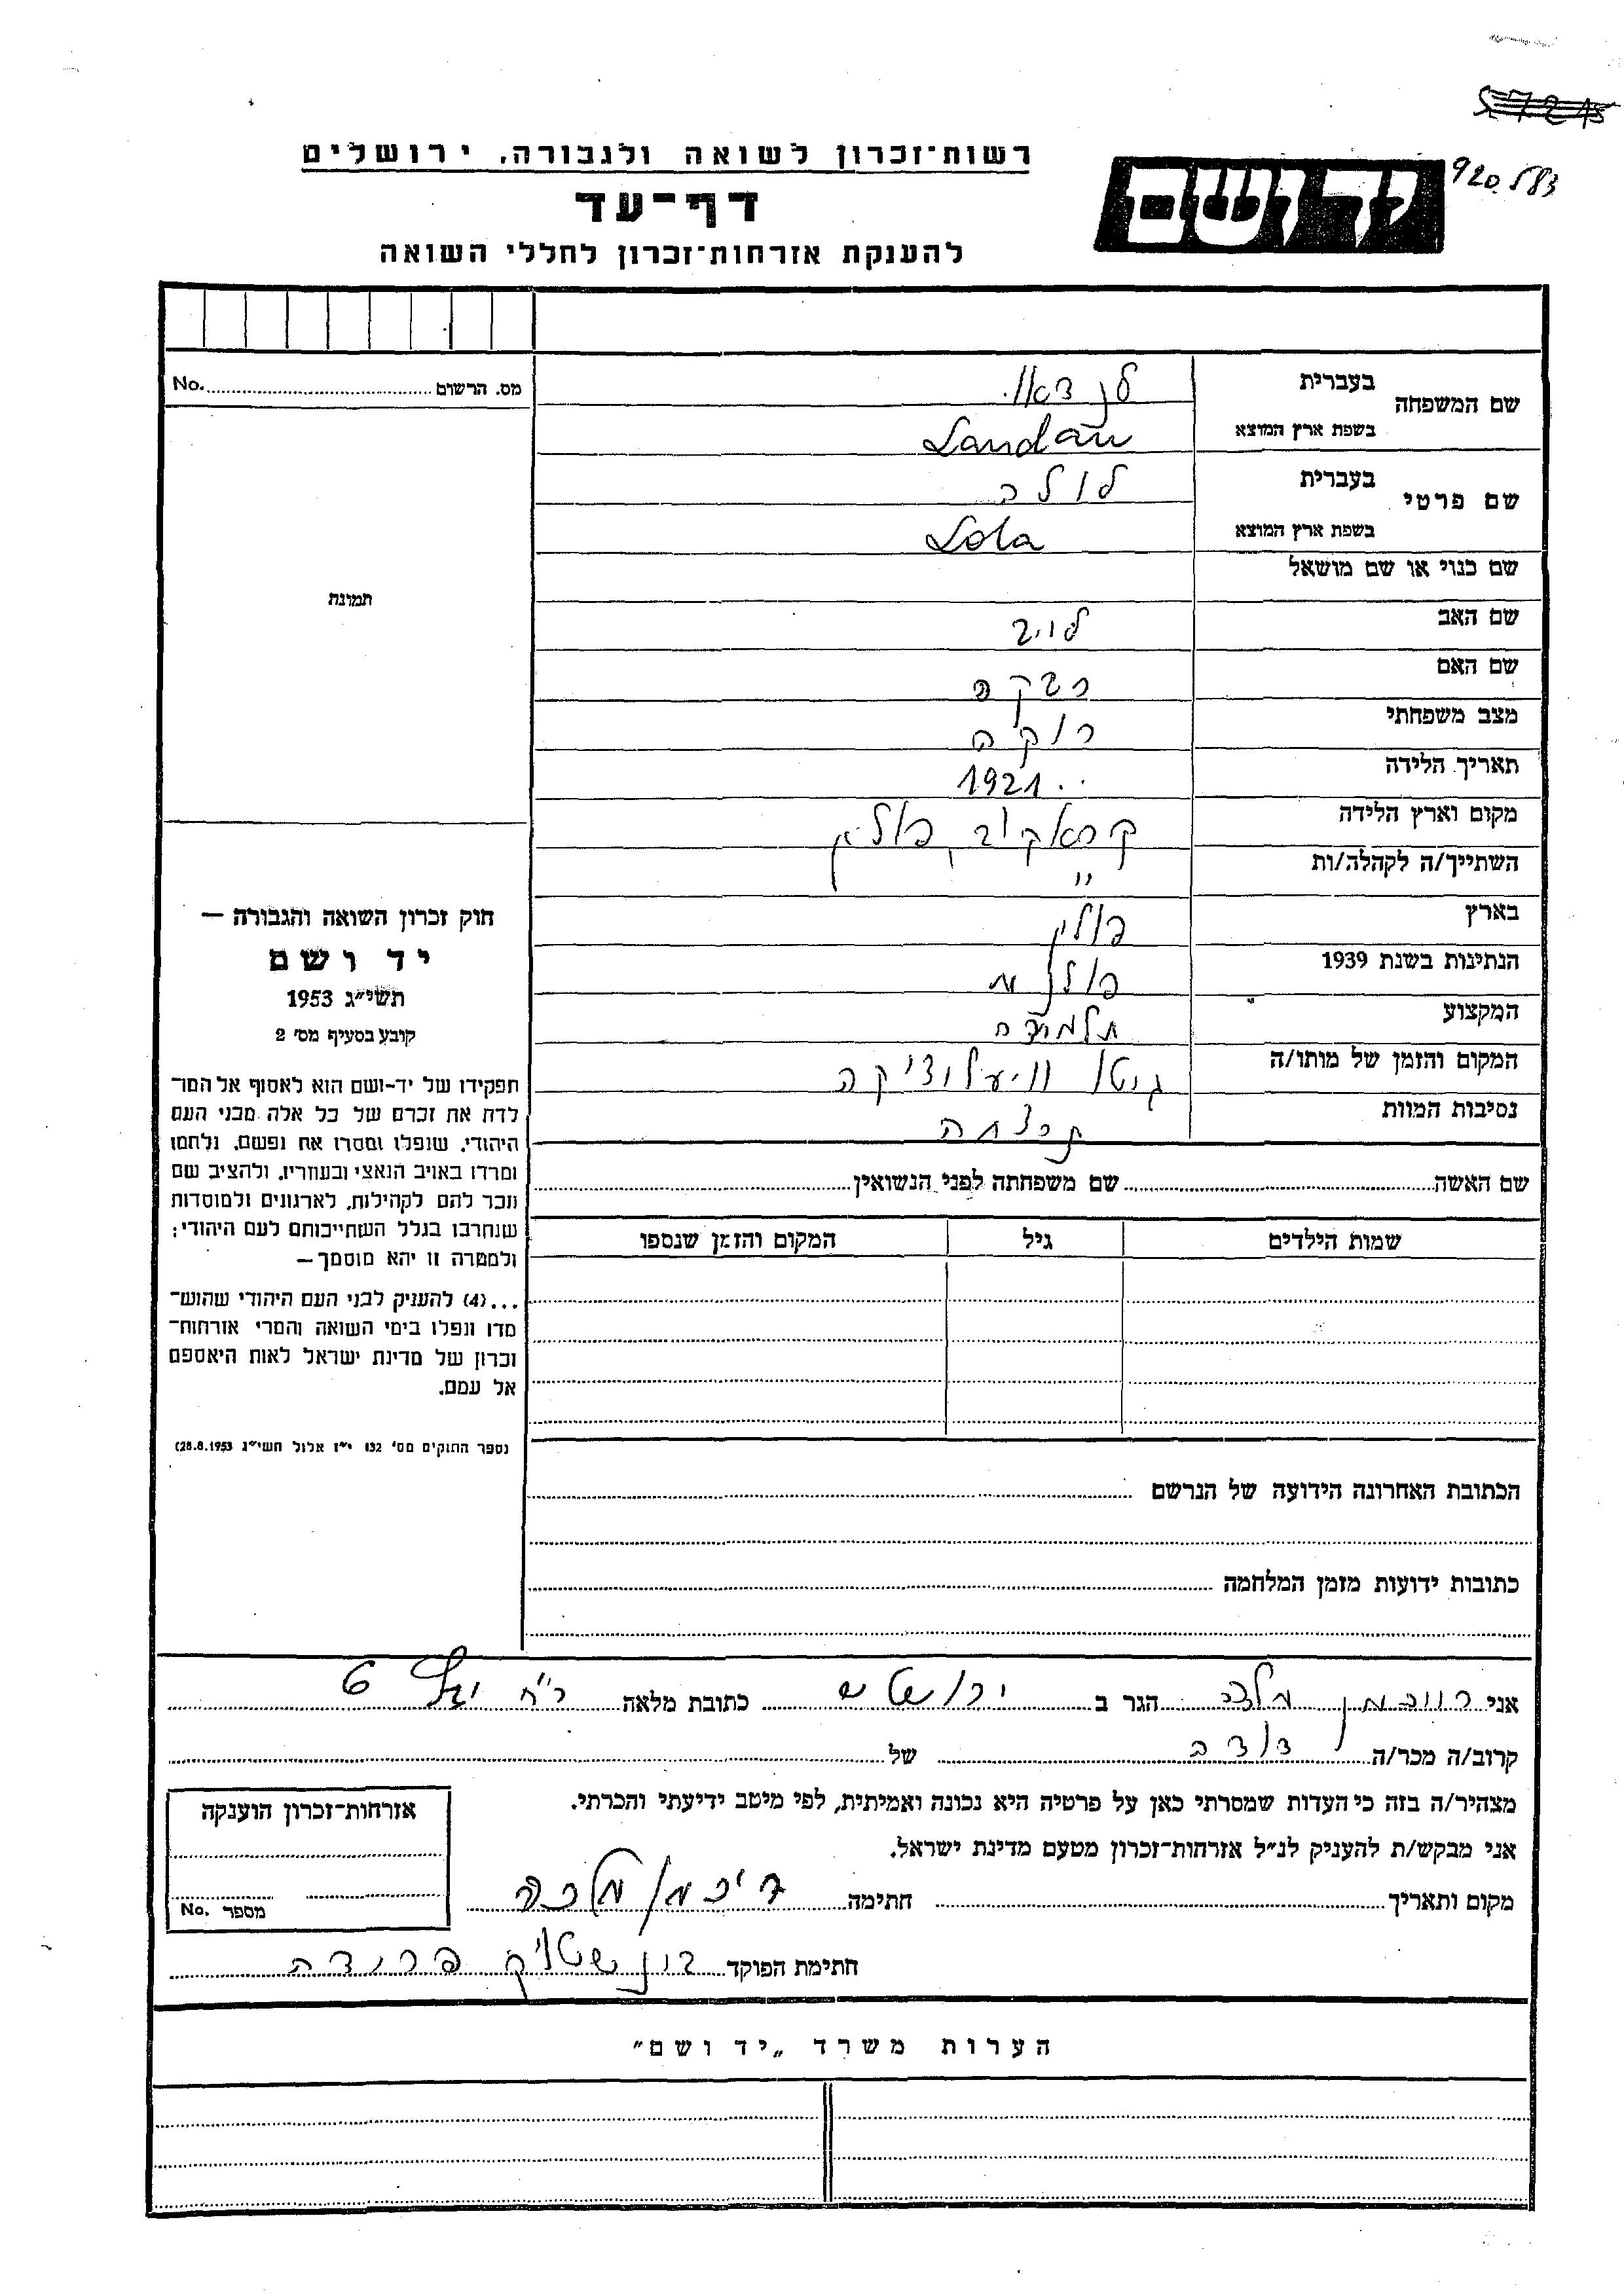 57215
920583
יד ושם
רשות־זכרון לשואה ולגבורה, ירושלים
דף־עד
להענקת אזרחות־זכרון לחללי השואה
מס. הרשום No.
שם המשפחה
בעברית לנדאו.
בשפת ארץ המוצא Landau
שם פרטי
בעברית לולה
בשפת ארץ המוצא Lola
שם כנוי או שם מושאל
שם האב לוי
שם האם רבקה
מצב משפחתי רוקה
תאריך הלידה 1921
מקום וארץ הלידה קראקוב, פולין
השתייך/ה לקהלה/ות "
בארץ פולין
הנתינות בשנת 1939 פולנית
המקצוע תלמידה
המקום והזמן של מותו/ה גיטו ויעלוצ'יקה
נסיבות המוות נרצחה
תמונה
שם האשה שם משפחתה לפני הנשואין
שמות הילדים גיל המקום והזמן שנספו
הכתובת האחרונה הידועה של הנרשם
כתובות ידועות מזמן המלחמה
חוק זכרון השואה והגבורה —
יד ושם
תשי"ג 1953
קובע בסעיף מס' 2
תפקידו של יד-ושם הוא לאסוף אל המו־
לדת את זכרם של כל אלה מבני העם
היהודי, שנפלו ומסרו את נפשם, נלחמו
ומרדו באויב הנאצי ובעוזריו, ולהציב שם
וזכר להם לקהילות, לארגונים ולמוסדות
שנחרבו בגלל השתייכותם לעם היהודי;
ולמטרה זו יהא מוסמך—
...(4) להעניק לבני העם היהודי שהוש־
מדו ונפלו בימי השואה והמרי אזרחות־
זכרון של מדינת ישראל לאות היאספם
אל עמם.
(ספר החוקים מס' 132 י"ז אלול תשי"ג 28.8.1953)
אני רייכמן מלכה הגר ב ירושלים כתובת מלאה רח' יעל 6
קרוב/ה מכר/ה דודה של
מצהיר/ה בזה כי העדות שמסרתי כאן על פרטיה היא נכונה ואמיתית, לפי מיטב ידיעתי והכרתי.
אני מבקש/ת להעניק לנ"ל אזרחות־זכרון מטעם מדינת ישראל.
מקום ותאריך חתימה רייכמן מלכה
חתימת הפוקד
אזרחות־זכרון הוענקה
מספר No.
הערות משרד „יד ושם"